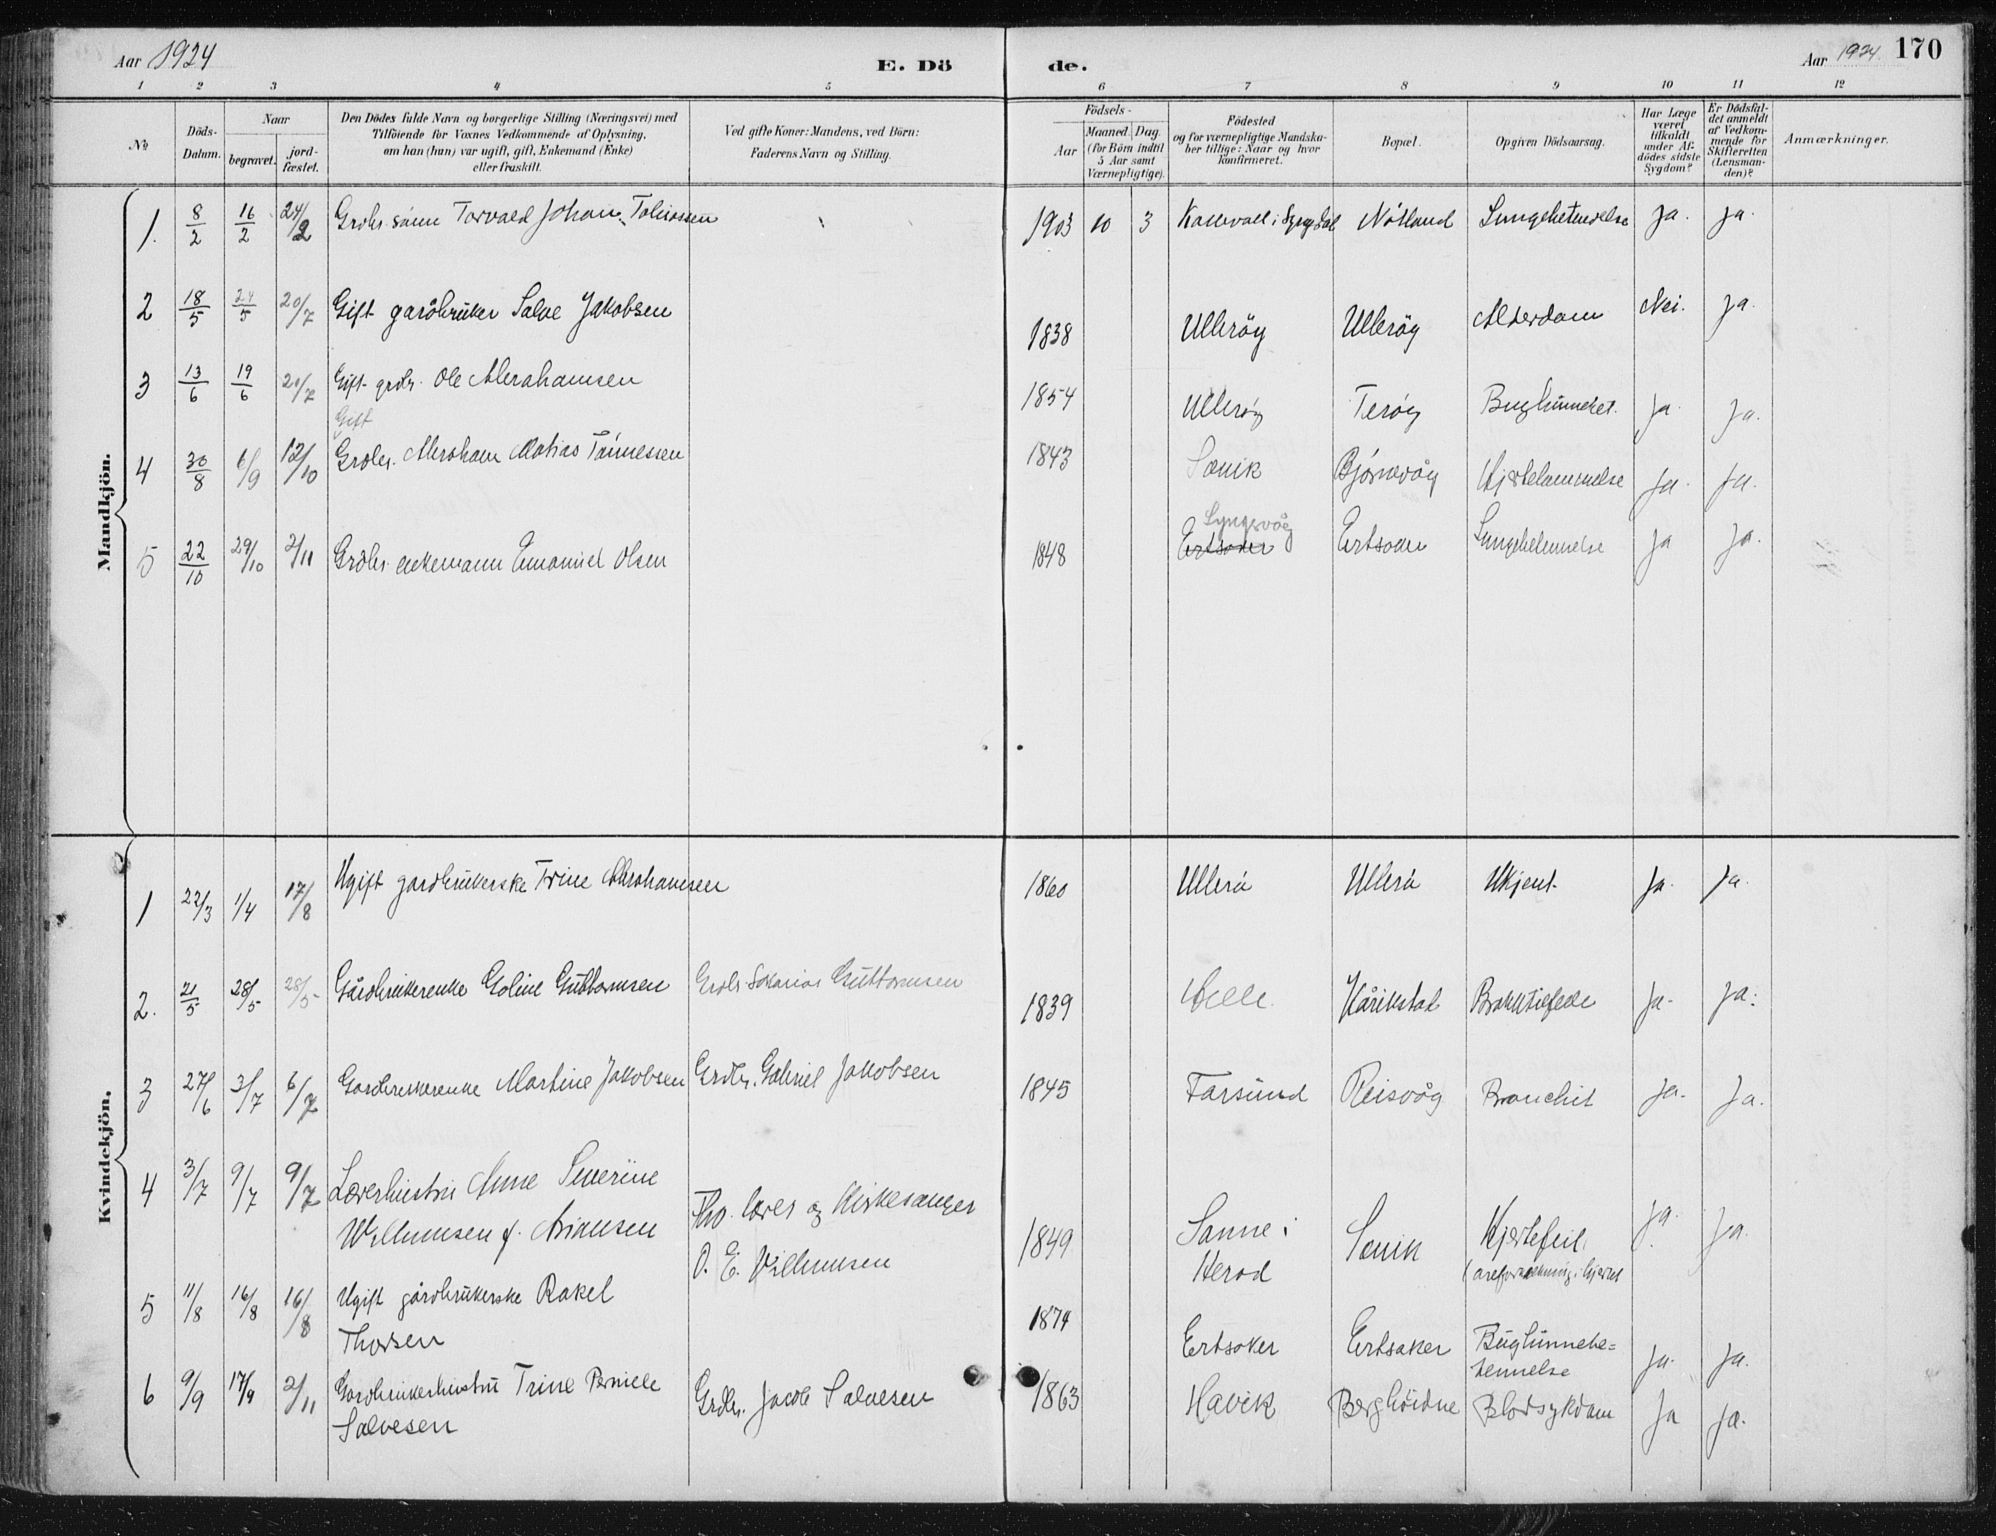 Aar 1924
E. Dö
de.
Aar 1924. 170
1 2 3 4 5 6 7 8 9 10 11 12
№
Döds-Datum.
Naar
begravet.
jord-fæstet.
Den Dödes fulde Navn og borgerlige Stilling (Næringsvei) med
Tilföiende for Voxnes Vedkommende af Oplysning,
om han (hun) var ugift, gift, Enkemand (Enke)
eller fraskilt.
Ved gifte Koner: Mandens, ved Börn:
Faderens Navn og Stilling.
Födsels-
Aar
Maaned. Dag.
(for Börn indtil
5 Aar samt
Værnepligtige).
Födested
og for værnepligtige Mandska-
ber tillige: Naar og hvor
konfirmeret.
Bopæl.
Opgiven Dödsaarsag.
Har Læge
været
tilkaldt
under Af-
dödes sidste
Sygdom?
Er Dödsfal-
det anmeldt
af Vedkom-
mende for
Skifteretten
(Lensman-
den)?
Anmærkninger.
Mandkjön.
1. 8/2 16/2 24/2 Grdbr. sönn Torvald Johan 1903 10 3 Nötland Lungebetendelse Ja. Ja.
2 18/5 24/5 20/7 Gift gardbruker Salve Jakobsen 1838 Ulleröy Ulleröy Alderdom Nei. Ja.
3 13/6 19/6 20/7 Gift grdbr. Ole Abrahamsen 1854 Ulleröy Teröy Ja. Ja.
Gift
4 30/8 6/9 12/10 Grdbr. Abraham Matias Tönnessen 1843 Sænik Björnevåg Hjertelammelse Ja. Ja.
Lyngsvåg
5 22/10 29/10 2/11 Grdbr. enkemann Emanuel Olsen 1848 Ertsaker Ertsaker Ja Ja.
Kvindekjön.
1 22/3 1/4 17/8 Ugift gardbrukerske Trine Abrahamsen 1860 Ullerö Ullerö Ukjent. Ja. Ja.
2. 21/5 28/5 28/5 Gårdbrukerenke Goline Guttormsen Grdbr. Sakarias Guttormsen 1839 Helle. Kårikstad Ja. Ja.
3 27/6 3/7 6/7 Gardbrukerenke Martine Jakobsen Grdbr. Gabriel Jakobsen 1845 Farsund Reisvåg Bronchit Ja. Ja.
4 3/7 9/7 9/7 Lærerhustru Anne Severine
Willumsen f. Ariansen
Fhv. lærer og Kirkesanger
O. E. Villumsen
1849
Sanne i
Herad
Sænik
Hjertefeil.
Ja. Ja.
5 11/8 16/8 16/8 Ugift gårdbrukerske Rakel
Thorsen
1874 Ertsaker Ertsaker
Bughinnebe=
tennelse
Ja. Ja.
6 9/9 17/9 2/11 Gardbrukerhustru Trine Perniele
Salvesen
Grdbr. Jacob Salvesen 1863 Havik Berghöidne Blodsykdom Ja Ja.